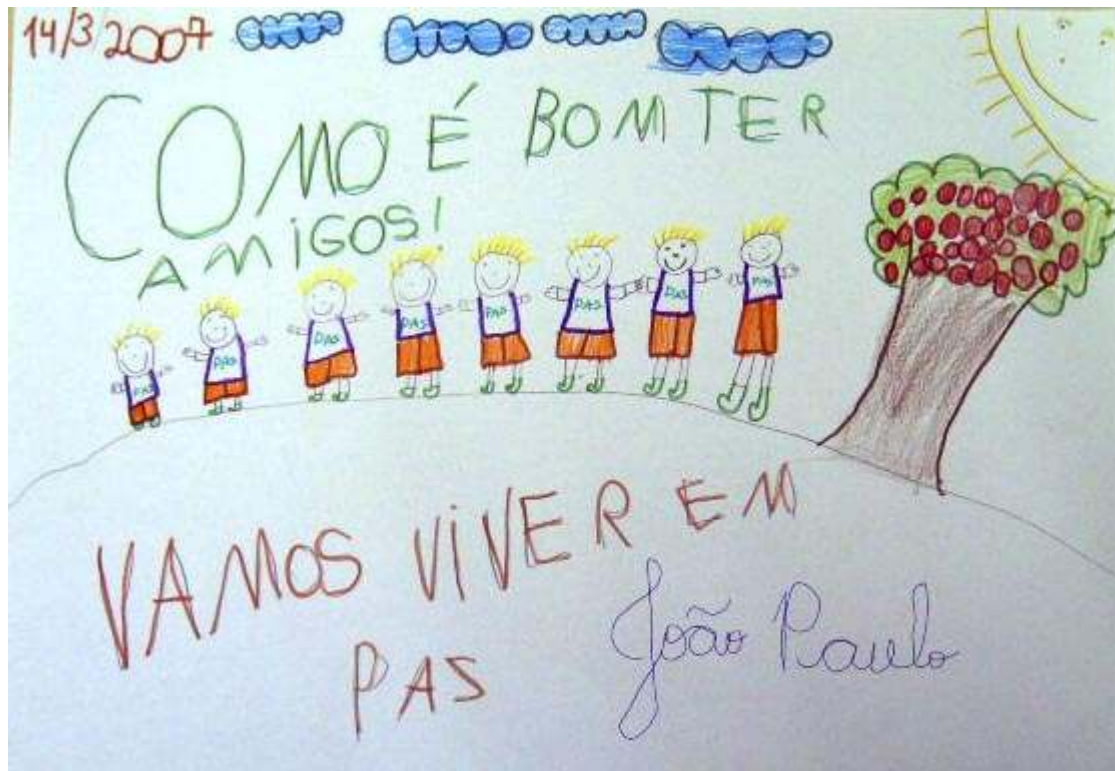 14/3/2007
COMO É BOM TER
AMIGOS!
PAS
PAS
PAS
PAS
PAS
PAS
PAS
PAS
VAMOS VIVER EM
PAS
João Paulo